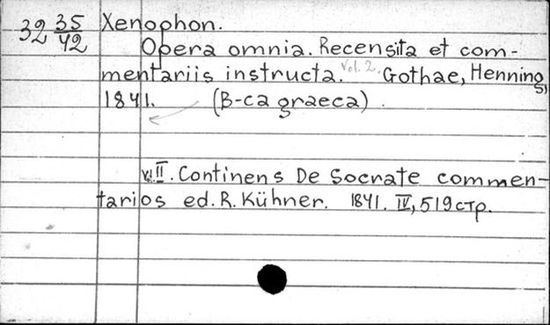 32 35/42 Xenophon.
Opera omnia. Recensita et com-
mentariis instructa. Vol. 2. Gothae, Hennings,
1841. (B-ca graeca).
v. II. Continens De Socrate commen-
tarios ed. R. Kühner. 1841. IV, 519 стр.